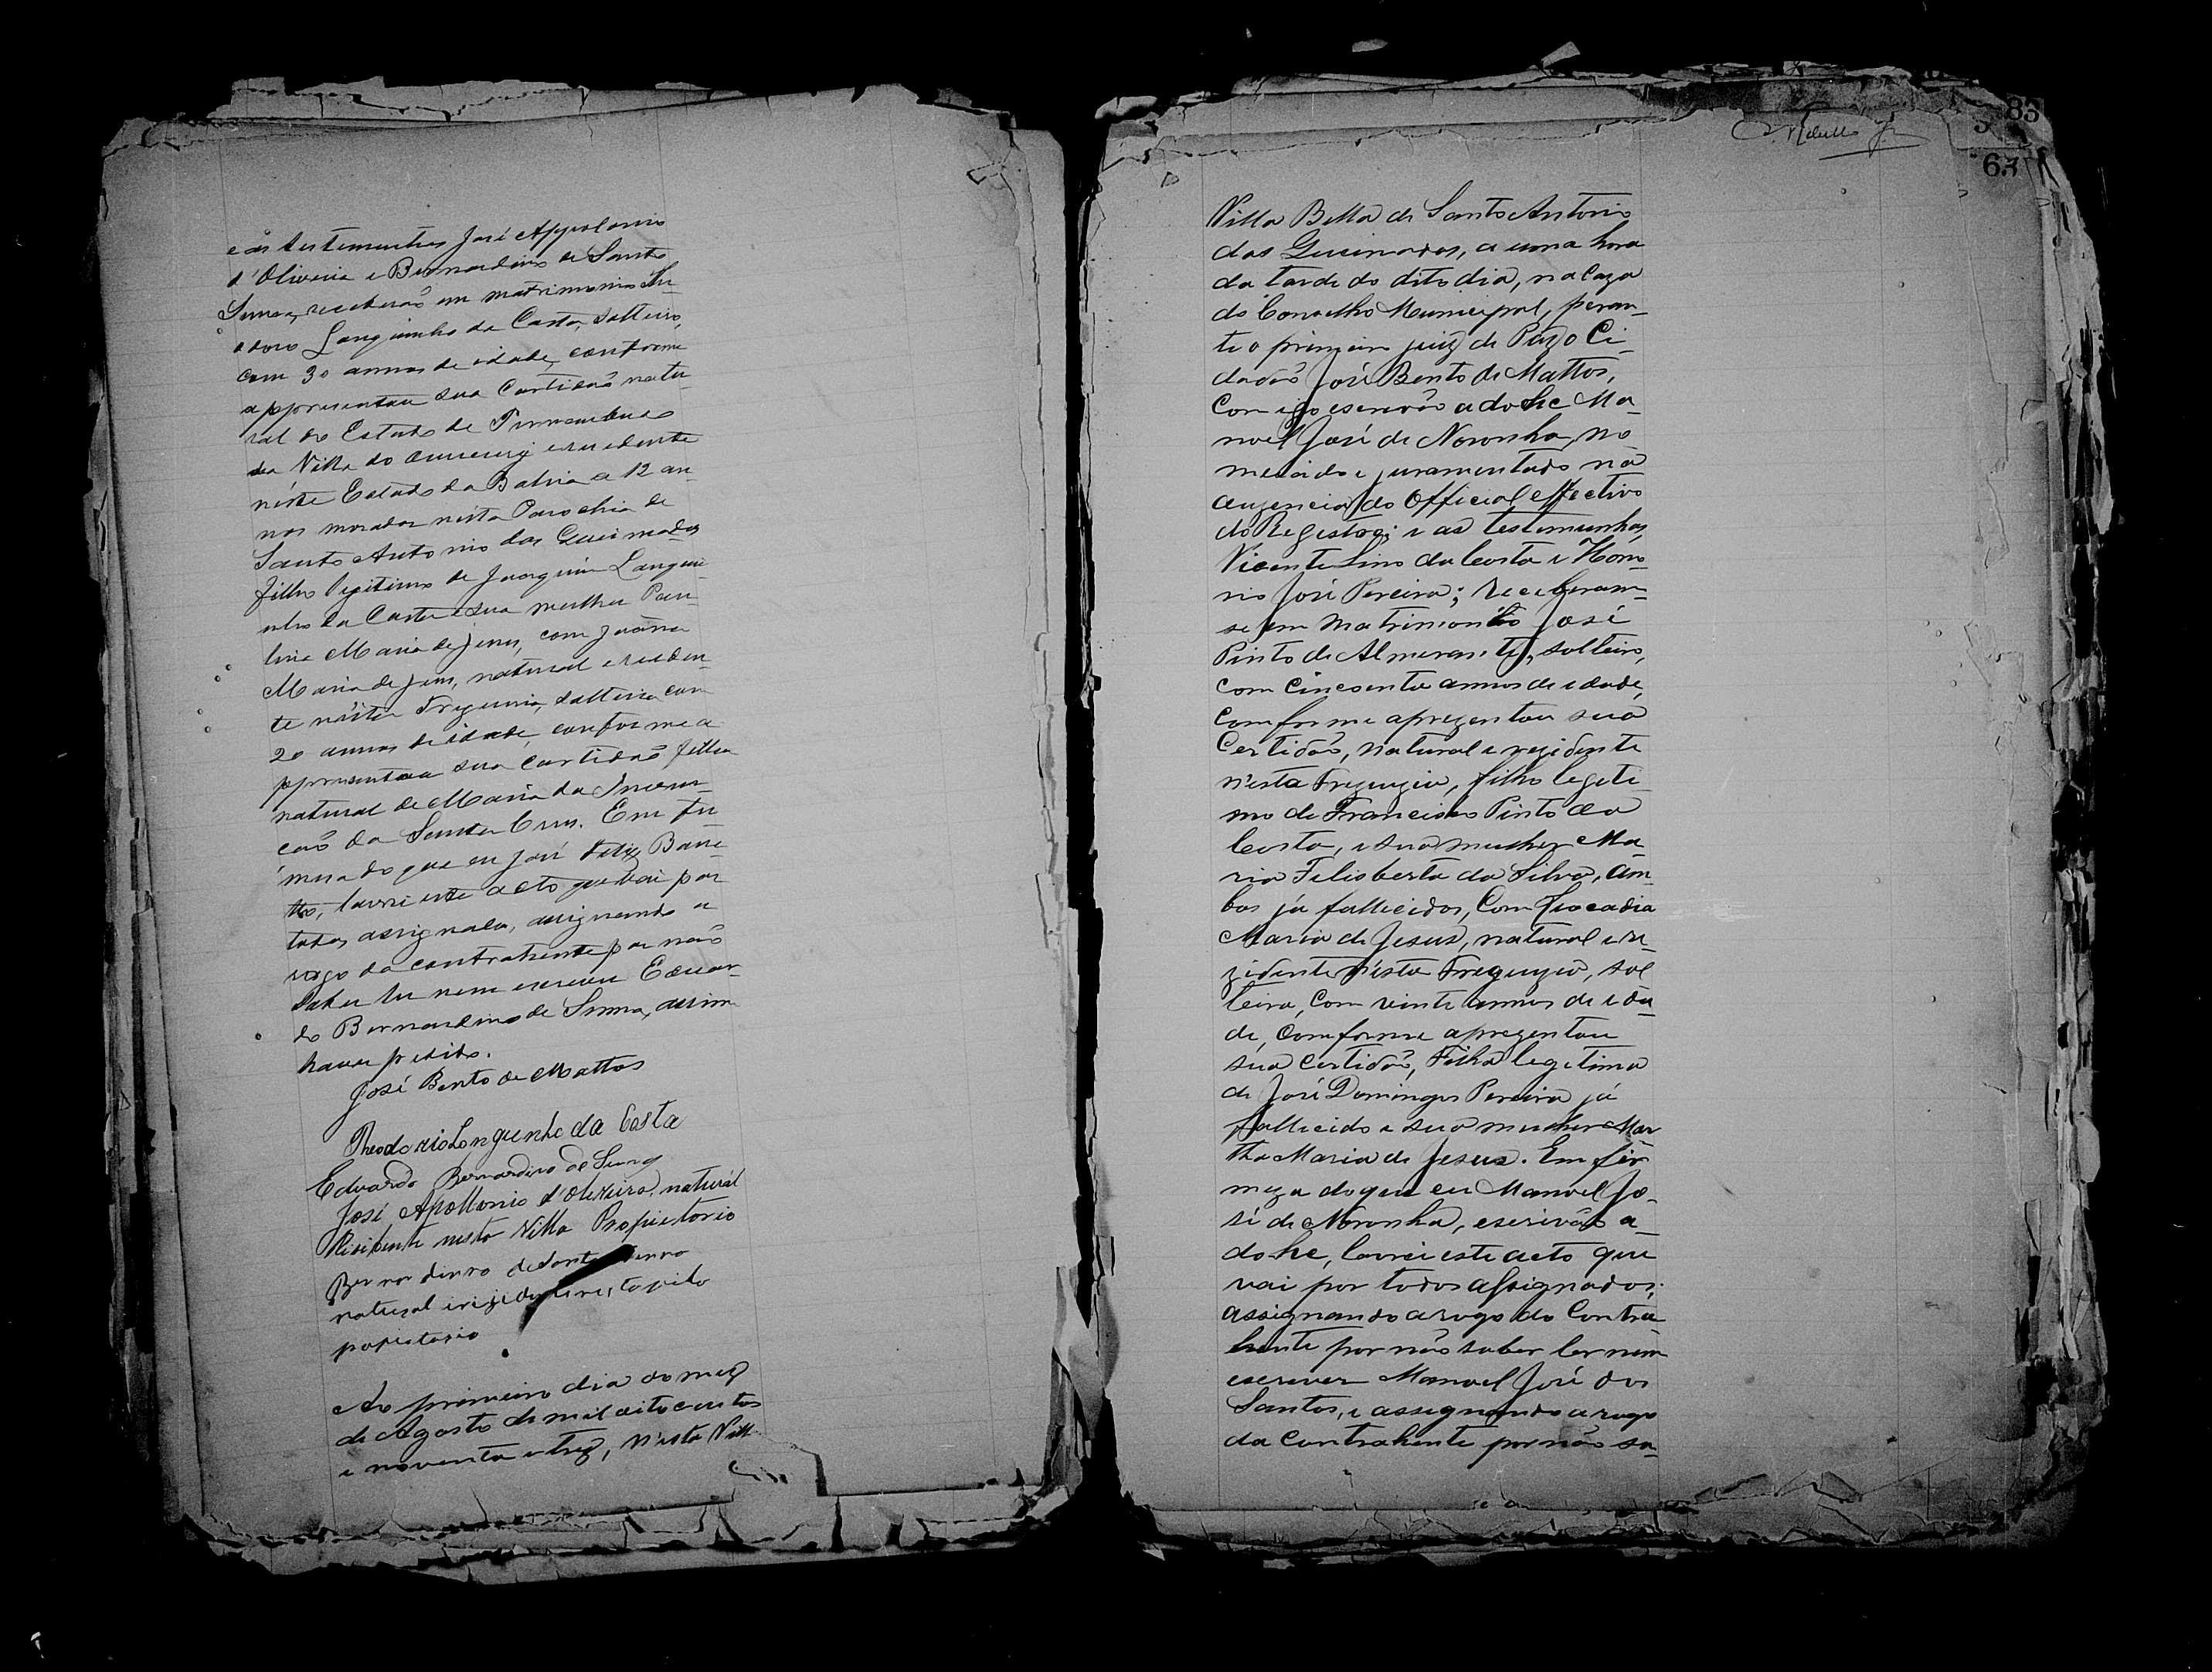 e as testemunhas José Appolonio
d'Oliveira e Bernardino de Santa
Senna, receberaõ em matrimonio The-
odoro Longuinho da Costa, solteiro,
com 30 annos de idade, conforme
appresentou sua Certidaõ natu-
ral do Estado de Pernambuco
da Villa do Ouricury e residente
néste Estado da Bahia a 12 an-
nos morador nesta Parochia de
Santo Antonio das Queimadas
filho legitimo de Joaquim Longui-
nho da Costa e sua mulher Pau-
lina Maria de Jesus, com Joanna
Maria de Jesus, natural e residen-
te nésta Freguesia, solteira com
20 annos de idade, conforme a
ppresentou sua certidaõ filha
natural de Maria da Incarna-
caõ da Santa Cruz. Em fir-
mesa do que eu José Felix Barre-
tto, lavrei este acto que vai por
todos assignado, assignando a
rogo da contrahente por naõ
saber ler nem escrever Eduar-
do Bernardino de Senna, assim
haver pedido.
José Bento de Mattos
Theodorio Longuinho da Costa
Eduardo Bernardino de Senna
José Apollonio d'Oliveira natural
Residente nesta Villa Propietario
Bernardinno de Santa Senna
natural e rizidente nesta vila
popietario
Ao primeiro dia do mez
de Agosto de mil oitocentos
e noventa e trez, n'esta Vill
83
63
Villa Bella de Santo Antonio
das Queimadas, a uma hora
da tarde do dito dia, na Caza
do Conselho Municipal, peran-
te o primeiro juiz de Paz o Ci-
dadaõ José Bento de Mattos,
Comigo escrivaõ adohc Ma-
noel José de Noronha, no-
meiado e juramentado na
auzencia do Official effectivo
do Registro; e as testemunhas
Vicente Lino da Costa e Hono-
rio José Pereira; receberam-
se em matrimonio José
Pinto de Almerante, solteiro,
com cincoenta annos de idade,
comforme aprezentou sua
Certidaõ, natural e rezidente
n'esta Freguezia, filho legeti-
mo de Francisco Pinto da
Costa, e sua mulher Ma-
ria Felisberta da Silva, am-
bos já fallicidos, Com Leocadia
Maria de Jesus, natural e re-
zidente n'esta Freguezia, sol
teira, Com vinte annos de ida-
de, Comforme aprezentou
sua certidaõ, Filha legetima
de José Domingos Pereira já
fallicido e sua mulher Mar
tha Maria de Jesus. Em fir
meza do que eu Manoel Jo-
sé de Noronha, escrivaõ a-
dohc, lavrei este acto que
vai por todos assignados;
assignando a rogo do Contra-
hente por naõ saber ler nem
escrever Manoel José dos
Santos, e assignando a rogo
da Contrahente por naõ sa-